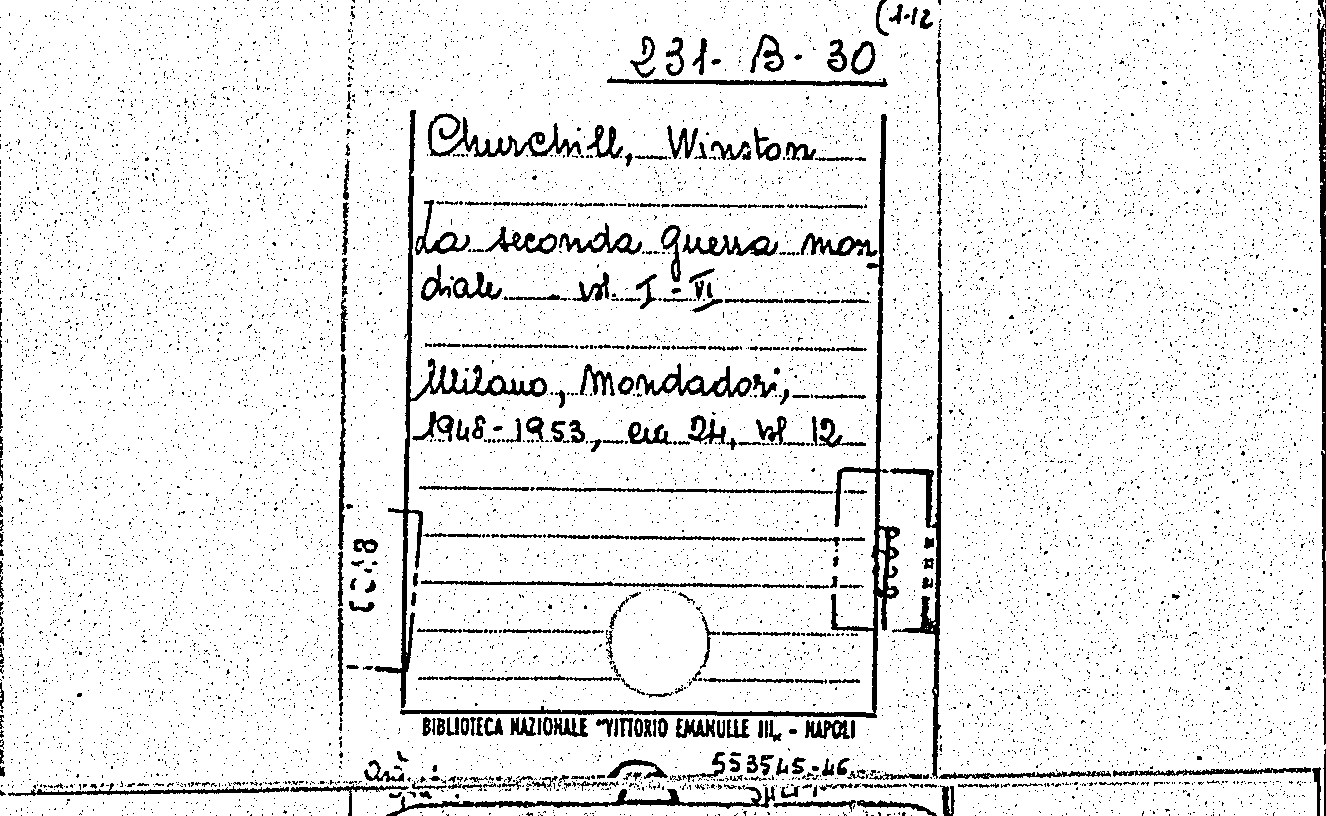 (1-12
231- B- 30
Churchill, Winston
La seconda guerra mon-
diale vol. I - VI
Milano, Mondadori,
1948-1953, cm 24, vol 12
BIBLIOTECA NAZIONALE "VITTORIO EMANUELE III„ - NAPOLI
553545-46